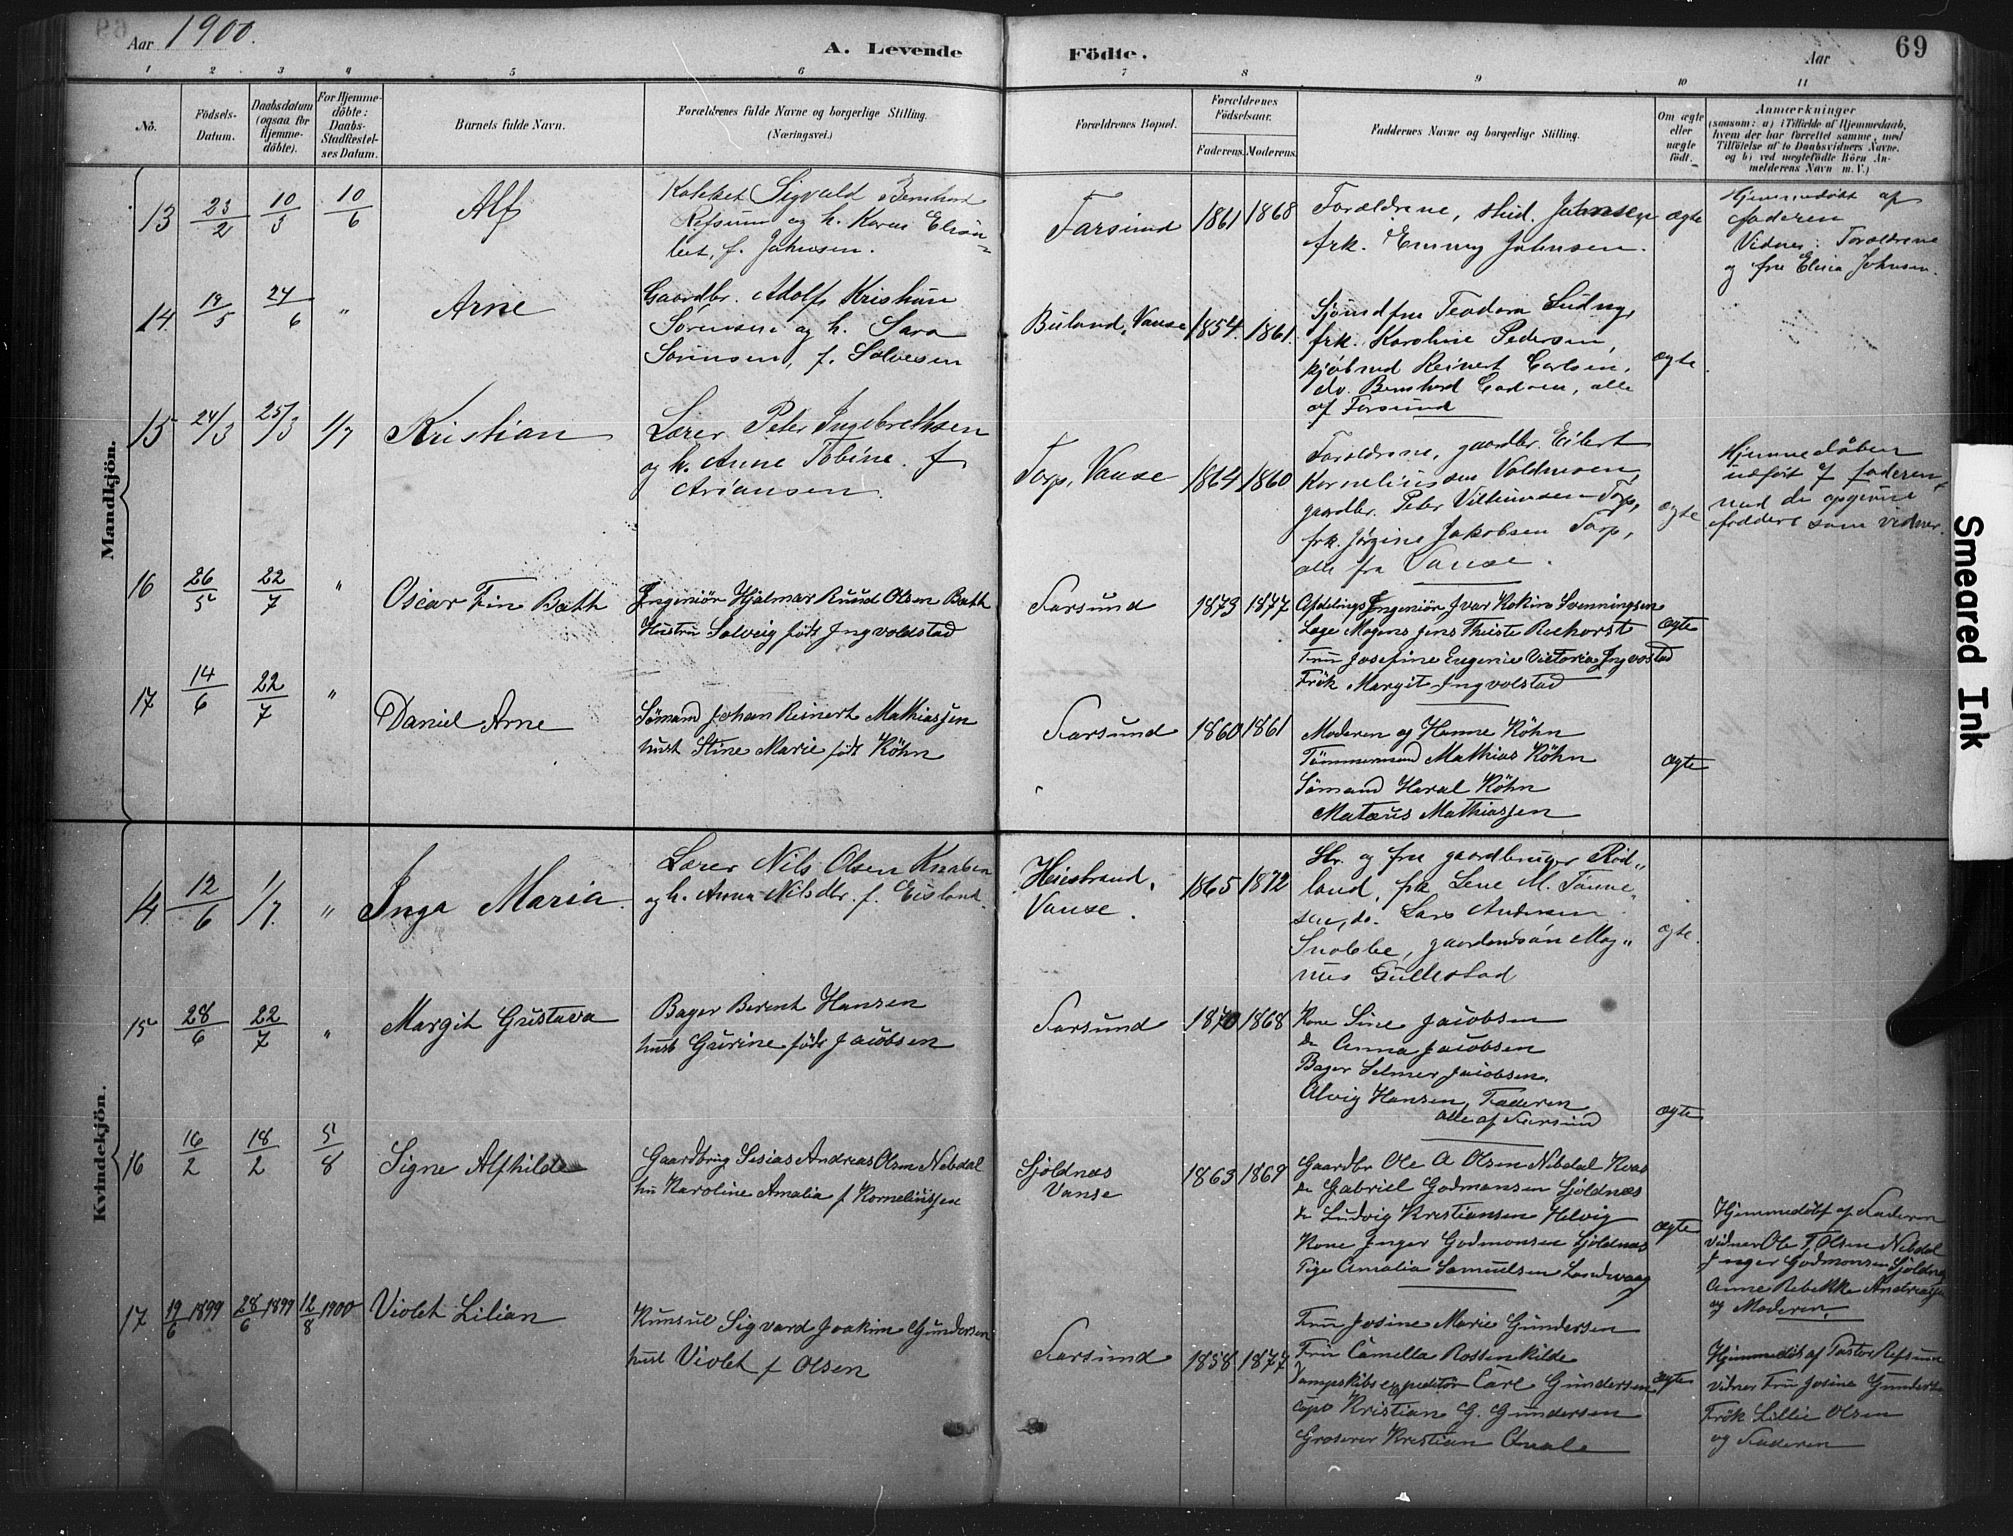 Aar 1900.
A. Levende Födte.
Aar
69
1 2 3 4 5 6 7 8 9 10 11
No.
Födsels-Datum.
Daabsdatum (ogsaa for Hjemmedöbte).
For Hjemmedöbte: Daabs-Stadfæstelses Datum.
Barnets fulde Navn.
Forældrenes fulde Navne og borgerlige Stilling. (Næringsvei.)
Forældrenes Bopæl.
Forældrenes Födselsaar.
Faderens. Moderens.
Faddernes Navne og borgerlige Stilling.
Om ægte eller uægte födt.
Anmærkninger
(saasom: a) i Tilfælde af Hjemmedaab,
hvem der har forrettet samme, med
Tilföielse af to Daabsvidners Navne,
og b) ved uægtefödte Börn An-
melderens Navn m. V.)
Mandkjön.
13 23/2 10/3 10/6 Alf
Sigvald Bernhard
Refsum og h. Karen Elisa-
bet, f. Johnsen.
Farsund 1861 1868
Forældrene, stud. Johnsen,
frk. Emmy Johnsen.
ægte
Hjemmedöbt af
faderen
Vidner: Forældrene
og fru Elisa Johnsen.
14 19/5 24/6 " Arne
Gaardbr. Adolf Kristian
Sörensen og h. Sara
Sörensen, f. Salvesen
Buland, Vanse 1854. 1861.
Sjömd fru Teodora
frk. Karoline Pedersen,
kjöbmd Reinert Carlsen,
do. Bernhard Carlsen, alle
af Farsund
ægte
15 24/3 25/3 1/7 Kristian
Lærer Peter Ingebrethsen
og h. Anne Tobine f
Ariansen.
Torp, Vanse 1864 1860
Forældrene, gaardbr. Eilert
Kornelius sen
gaardbr. Peter Villumsen Torp,
frk. Jörgine Jakobsen Torp,
alle fra Vanse.
ægte
Hjemmedåben
udfört af faderen
med de opgivne
faddere som vidner.
16 26/5 22/7 " Oscar Fin Bath
Ingeniör Hjalmar Ruud Olsen Bath
Hustru Solveig födt Ingvoldstad
Farsund 1873 1877
Afdelings Ingeniör Ivar Svenningsen
Læge Mogens Jens Thiste Rochorst
Fru Josefine Eugenie Victoria Ingvolstad
Frök Margit Ingvolstad
ægte
17 14/6 22/7 " Daniel Arne
Sömand Johan Reinert Mathiassen
hust Stine Marie födt Köhn
Farsund 1860 1861
Moderen og Hanne Köhn
Tömmermand Mathias Köhn
Sömand Haral Köhn
Matæus Mathiassen
ægte
Kvindekjön.
14 12/6 1/7. " Inga Maria.
Lærer Nils Olsen Knaben
og h. Anna Nilsdtr. f. Eisland.
Heiestrand, Vanse. 1865 1872
Hr. og fru gaardbruger Röd-
land, frk Lene M. Tönne-
sen, do. Lars Andersen
Snobbe, gaardmdsön Mag-
nus Gullestad
ægte.
15 28/6 22/7 " Margit Gustava
Bager Berent Hansen
hust Gurine födt Jacobsen
Farsund 1870 1868
Kone Sine Jacobsen
do Anna Jacobsen
Bager Selmer Jacobsen.
Alvig Hansen, Faderen
alle af Farsund
ægte
16 16/2 18/2 5/8 Signe Alfhilde
Gaardbrug Sesias Andreas Olsen Nebdal
hu Karoline Amalia f Korneliussen
Sjöldnæs Vanse 1863 1869
Gaardbr Ole A Olsen Nebdal
do Gabriel Godmansen Sjöldnæs
do Ludvig Kristiansen Helvig
Kone Inger Godmonsen Sjöldnæs
Pige Amalia Samuelsen Lundevaag
ægte
Hjemmedöbt af Faderen
vidner Ole T. Olsen Nebdal
Inger Godmonsen Sjöldnæs
Anne Rebekke Andreassen
og Moderen
17 19/6 1899 28/6 1899 12/8 1900 Violet Lilian
Kunsul Sigvard Joakim Gundersen
hust Violet f Olsen
Farsund 1858 1877
Fru Josine Marie Gundersen
Fru Camella Rossenkilde
Dampskibsexpeditör Carl Gundersen
capt Kristian G. Gundersen
Groserer Kristian Qvale
ægte
Hjemmedöbt af Pastor Refsum
vidner Fru Josine Gundersen
Frök Lillie Olsen
og Faderen
Smeared Ink